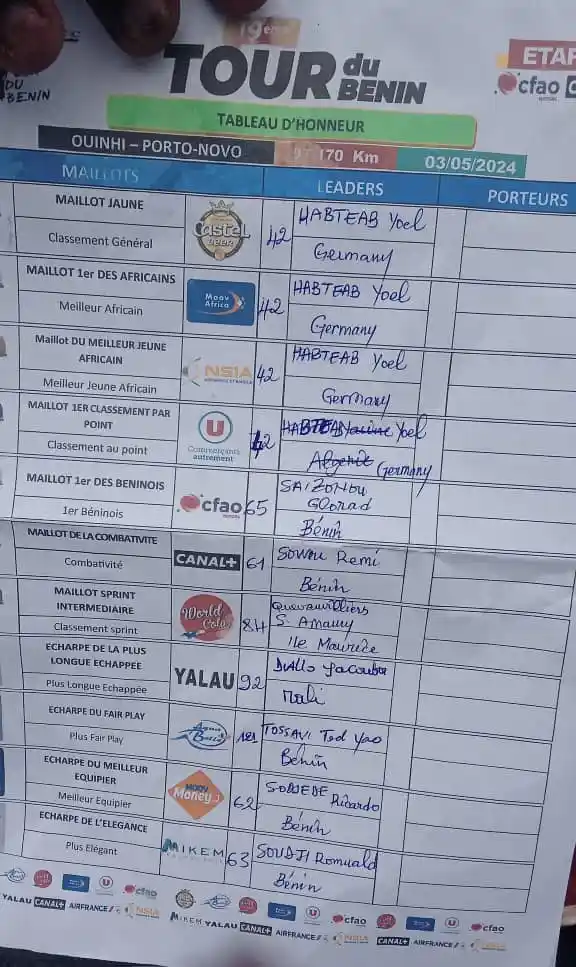 19ème
TOUR du BENIN
DU
BENIN
ETAP
cfao
TABLEAU D'HONNEUR
OUINHI – PORTO-NOVO 170 Km 03/05/2024
MAILLOTS LEADERS PORTEURS
MAILLOT JAUNE
Classement Général
Castel
BEER
42
HABTEAB Yoel
Germany
MAILLOT 1er DES AFRICAINS
Meilleur Africain
Moov
Africa
42
HABTEAB Yoel
Germany
Maillot DU MEILLEUR JEUNE
AFRICAIN
Meilleur Jeune Africain
NSIA
42
HABTEAB Yoel
Germany
MAILLOT 1ER CLASSEMENT PAR
POINT
Classement au point
U
Commerçants
autrement
42
HABTEAB Yoel
Algerie Germany
MAILLOT 1er DES BENINOIS
1er Béninois
cfao
65
SAIZONOU
Glorad
Bénin
MAILLOT DE LA COMBATIVITE
Combativité
CANAL+
61
SOWOU Remi
Bénin
MAILLOT SPRINT
INTERMEDIAIRE
Classement sprint
World
Cola
84
S. Amaury
Ile Maurice
ECHARPE DE LA PLUS
LONGUE ECHAPPEE
Plus Longue Echappée
YALAU
92
Diallo Yacouba
Mali
ECHARPE DU FAIR PLAY
Plus Fair Play
Aqua
Belle
TOSSAVI Ted Yao
Bénin
ECHARPE DU MEILLEUR
EQUIPIER
Meilleur Equipier
Moov
Money
62
SODJEDE Ricardo
Bénin
ECHARPE DE L'ELEGANCE
Plus Elégant
MIKEM
63
SOUDJI Romuald
Bénin
U cfao U cfao U cfao
YALAU CANAL+ AIRFRANCE NSIA MIKEM YALAU CANAL+ AIRFRANCE NSIA CANAL+ AIRFRANCE NSIA